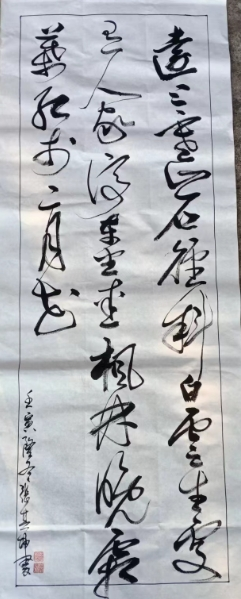 遠上寒山石徑斜白雲生處
有人家停車坐愛楓林晚霜
葉紅於二月花
壬寅隆冬書